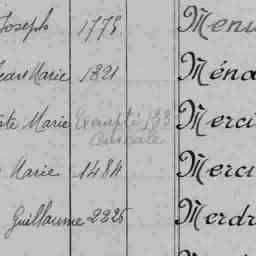 Joseph 1775 Menu
Jean Marie 1821 Ména
ste Marie Exempté 33 Merci
Marie 1484 Merci
Guillaume 2225 Merdr